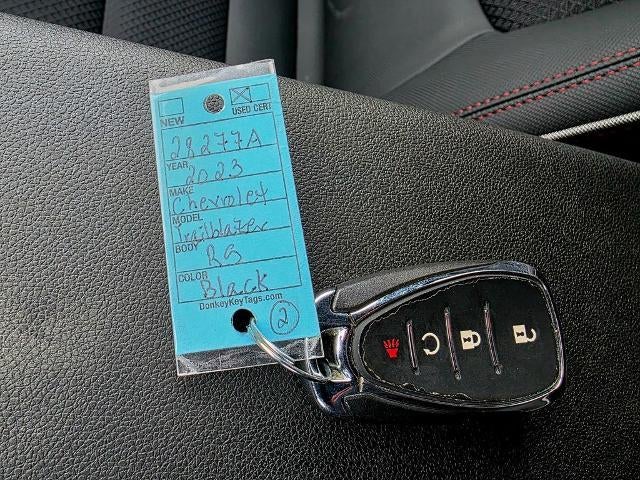 NEW USED CERT
28277A
YEAR 2023
MAKE Chevrolet
MODEL Trailblazer
BODY RS
COLOR Black
DonkeyKeyTags.com
2